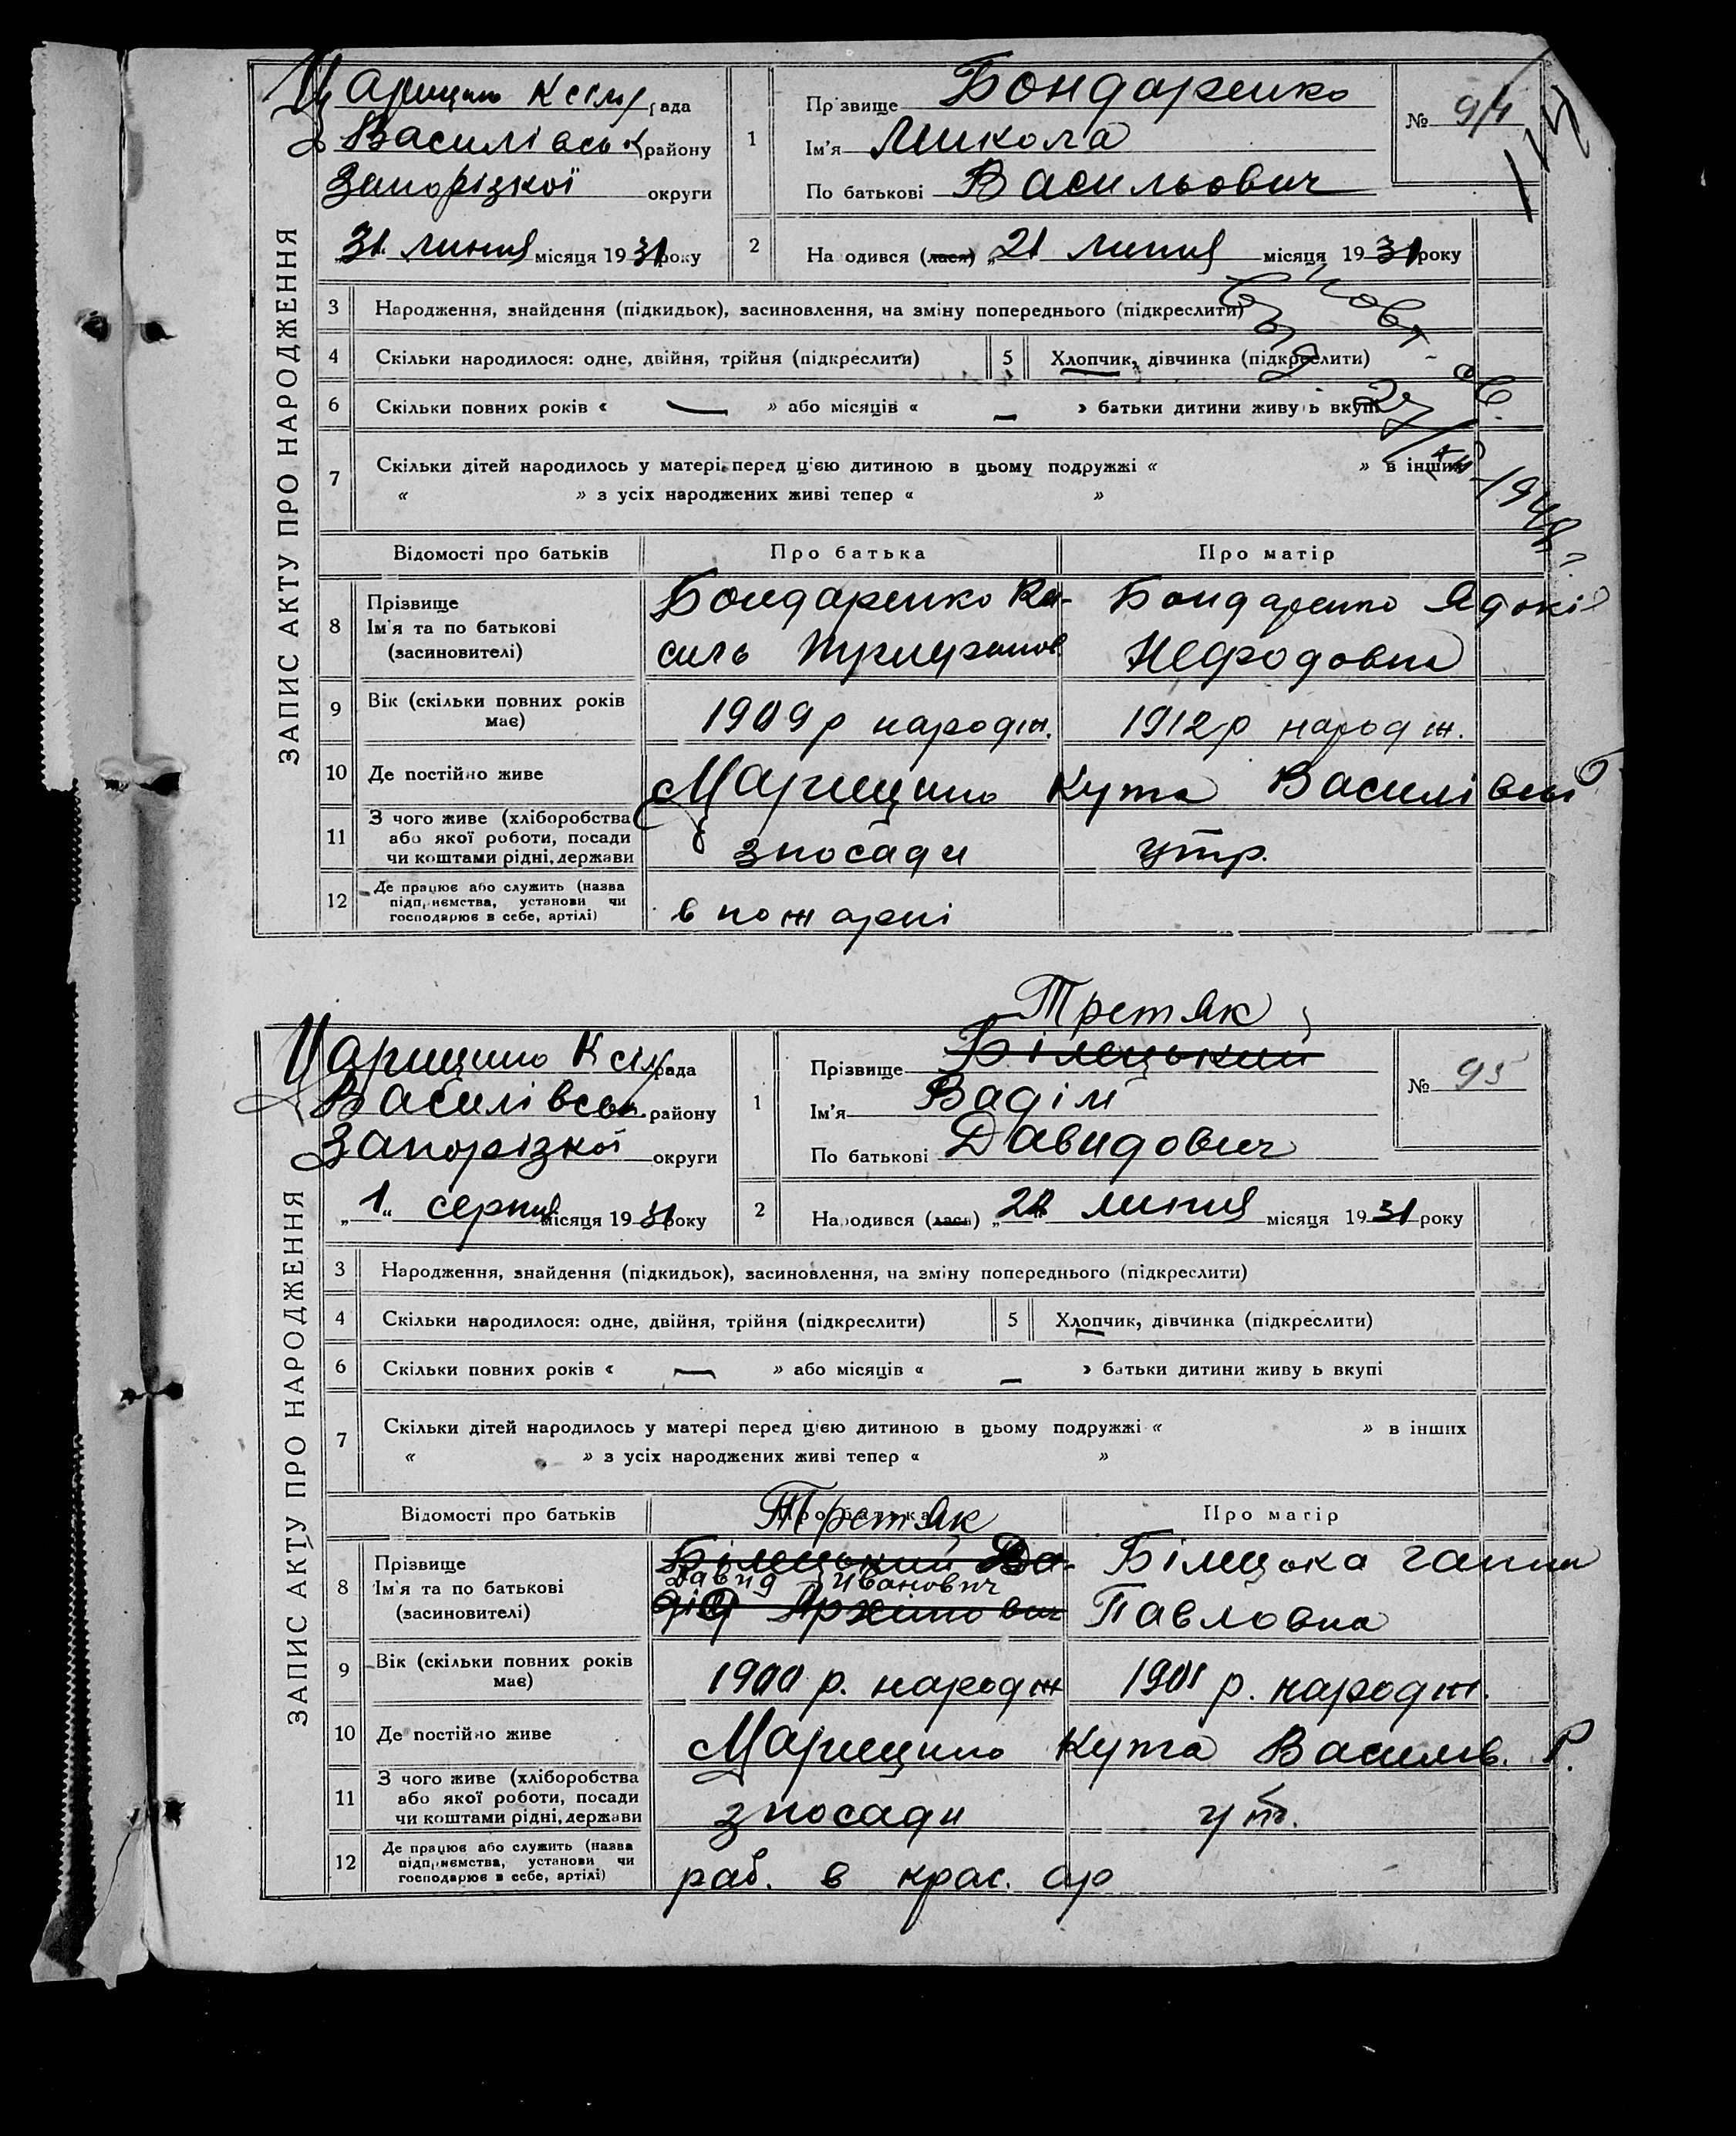 ЗАПИС АКТУ ПРО НАРОДЖЕННЯ
Царицино К сіль рада
Василівськ району
Запорізкої округи
„31" липня місяця 1931 року
1
Прізвище Бондаренко
Ім'я Микола
По батькові Васильович
№ 94
2
На одився (лася) „21 липня місяця 1931 року
3 Народження, знайдення (підкидьок), засиновлення, на зміну попереднього (підкреслити)
4 Скільки народилося: одне, двійня, трійня (підкреслити)
5 Хлопчик, дівчинка (підкреслити)
6 Скільки повних років « — » або місяців « — » батьки дитини живуть вкупі
7 Скільки дітей народилось у матері перед цією дитиною в цьому подружжі « » в інших
« » з усіх народжених живі тепер « »
Відомості про батьків Про батька Про матір
8 Прізвище
Ім'я та по батькові
(засиновителі)
Бондаренко Ва-
силь
Бондаренко
9 Вік (скільки повних років
має)
1909 р народж. 1912 р народж.
10 Де постійно живе Царицино Кута Василівськ
11 З чого живе (хліборобства
або якої роботи, посади
чи коштами рідні, держави
з посади утр.
12 Де працює або служить (назва
підприємства, установи чи
господарює в себе, артілі)
в пожарні
ЗАПИС АКТУ ПРО НАРОДЖЕННЯ
Царицино К сіль рада
Василівськ. району
Запорізкої округи
„1" серпня місяця 1931 року
1
Третяк
Прізвище Білецький
Ім'я Вадім
По батькові Давидович
№ 95
2
Народився (лася) „ липня місяця 1931 року
3 Народження, знайдення (підкидьок), засиновлення, на зміну попереднього (підкреслити)
4 Скільки народилося: одне, двійня, трійня (підкреслити)
5 Хлопчик, дівчинка (підкреслити)
6 Скільки повних років « — » або місяців « — » батьки дитини живу ь вкупі
7 Скільки дітей народилось у матері перед цією дитиною в цьому подружжі « » в інших
« » з усіх народжених живі тепер « »
Відомості про батьків Про батька Про матір
Третяк
8 Прізвище
Ім'я та по батькові
(засиновителі)
Білецький
Давид Иванович
Архипович
Білецька Ганна
Павловна
9 Вік (скільки повних років
має)
1900 р. народж 1901 р. народж.
10 Де постійно живе Царицино Кута Василів. р.
11 З чого живе (хліборобства
або якої роботи, посади
чи коштами рідні, держави
з посади ут.
12 Де працює або служить (назва
підприємства, установи чи
господарює в себе, артілі)
раб. в крас. ар